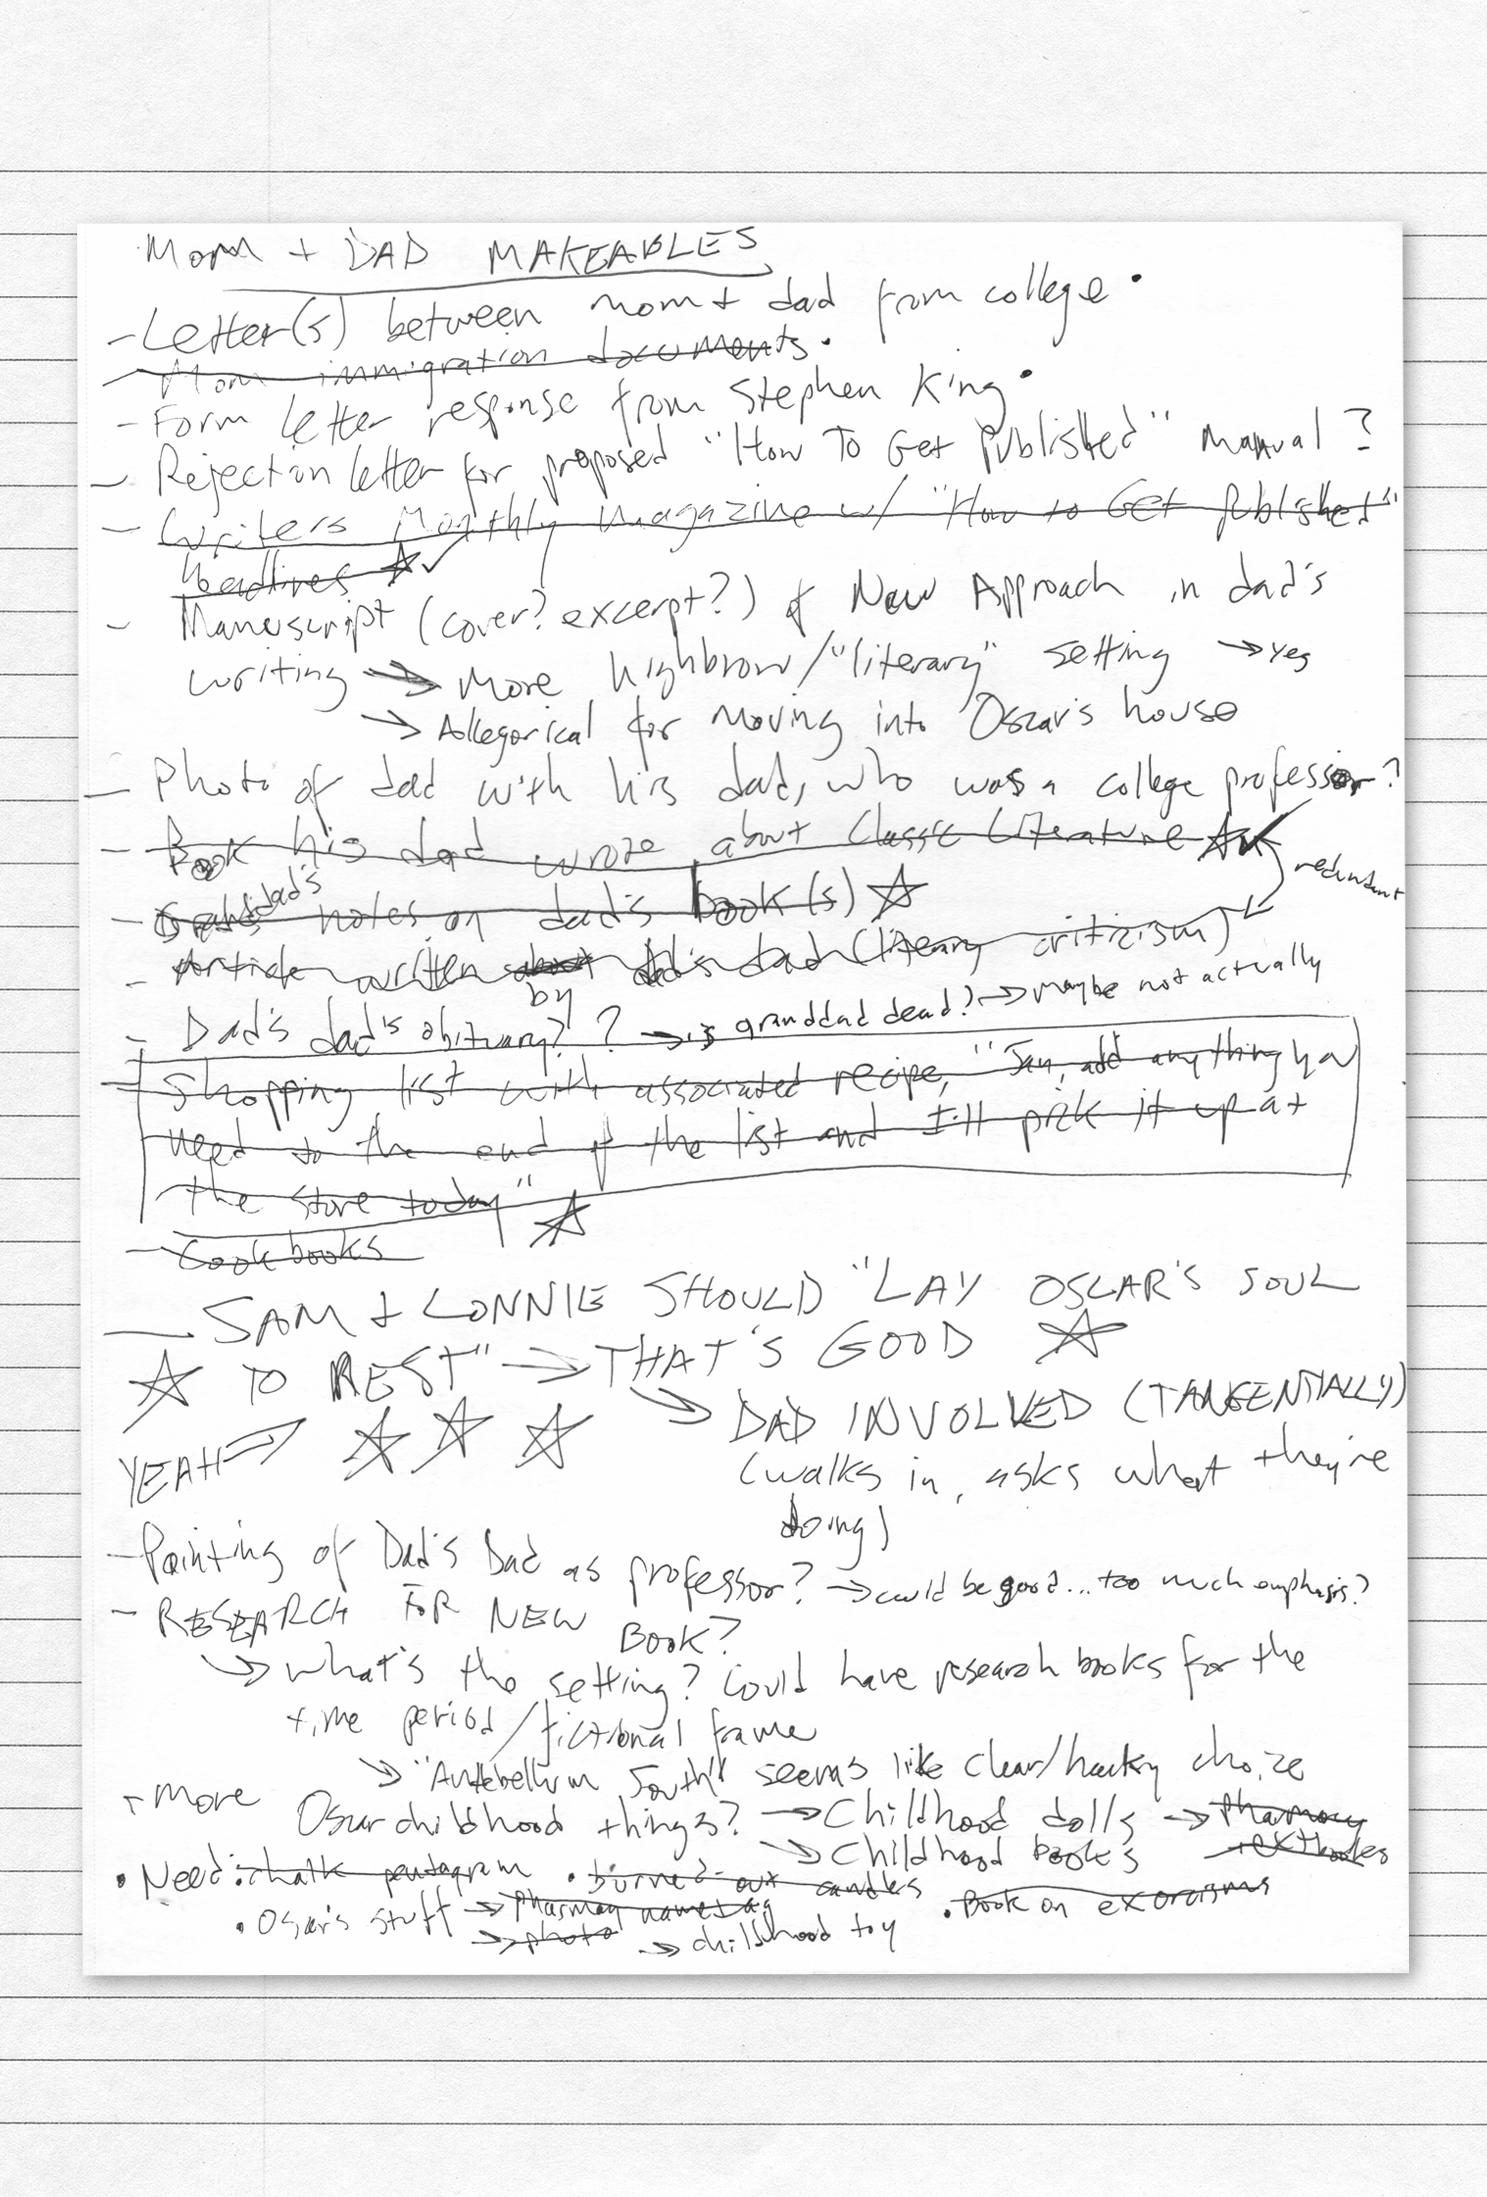 Mom + DAD MAKEABLES
- Letter(s) between mom + dad from college •
- Mom immigration documents •
- Form letter response from Stephen King •
- Rejection letter for proposed "How To Get Published" manual?
- Writers Monthly magazine w/ "How to Get Published"
headlines ☆✓
- Manuscript (cover? excerpt?) of New Approach in dad's
writing → More highbrow/"literary" setting → yes
→ Allegorical for moving into Oscar's house
- Photo of dad with his dad, who was a college professor?
- Book his dad wrote about Classic Literature ☆✓
redundant
- Granddad's notes on dad's book(s) ☆
- Article written about by dad's dad (literary criticism)
- Dad's dad's obituary? ? → is granddad dead? → maybe not actually
- Shopping list with associated recipe, "Jan, add anything you
need to the end of the list and I'll pick it up at
the store today" ☆
- Cookbooks
- SAM + LONNIE SHOULD "LAY OSCAR'S SOUL
☆ TO REST" → THAT'S GOOD ☆
→ DAD INVOLVED (TANGENTIALLY)
YEAH → ☆ ☆ ☆
(walks in, asks what they're
doing)
- Painting of Dad's Dad as professor? → could be good... too much emphasis?
- RESEARCH FOR NEW BOOK?
→ what's the setting? Could have research books for the
time period/fictional frame
→ "Antebellum South" seems like clear/hacky choice
- more Oscar childhood things? → Childhood dolls → Pharmacy textbooks
→ Childhood books
• Need: chalk pentagram • burned-out candles • Book on exorcisms
• Oscar's stuff → Pharmacy nametag
→ photo → childhood toy